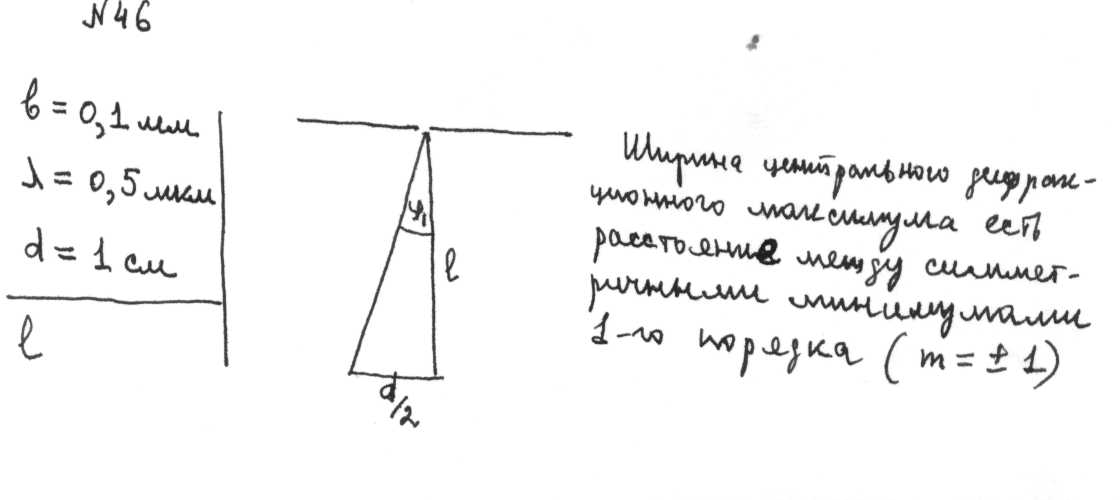 N46
b = 0,1 мм
λ = 0,5 мкм
d = 1 см
l
φ₁
l
d/2
Ширина центрального дифрак-
ционного максимума есть
расстояние между симмет-
ричными минимумами
1-го порядка (m = ± 1)